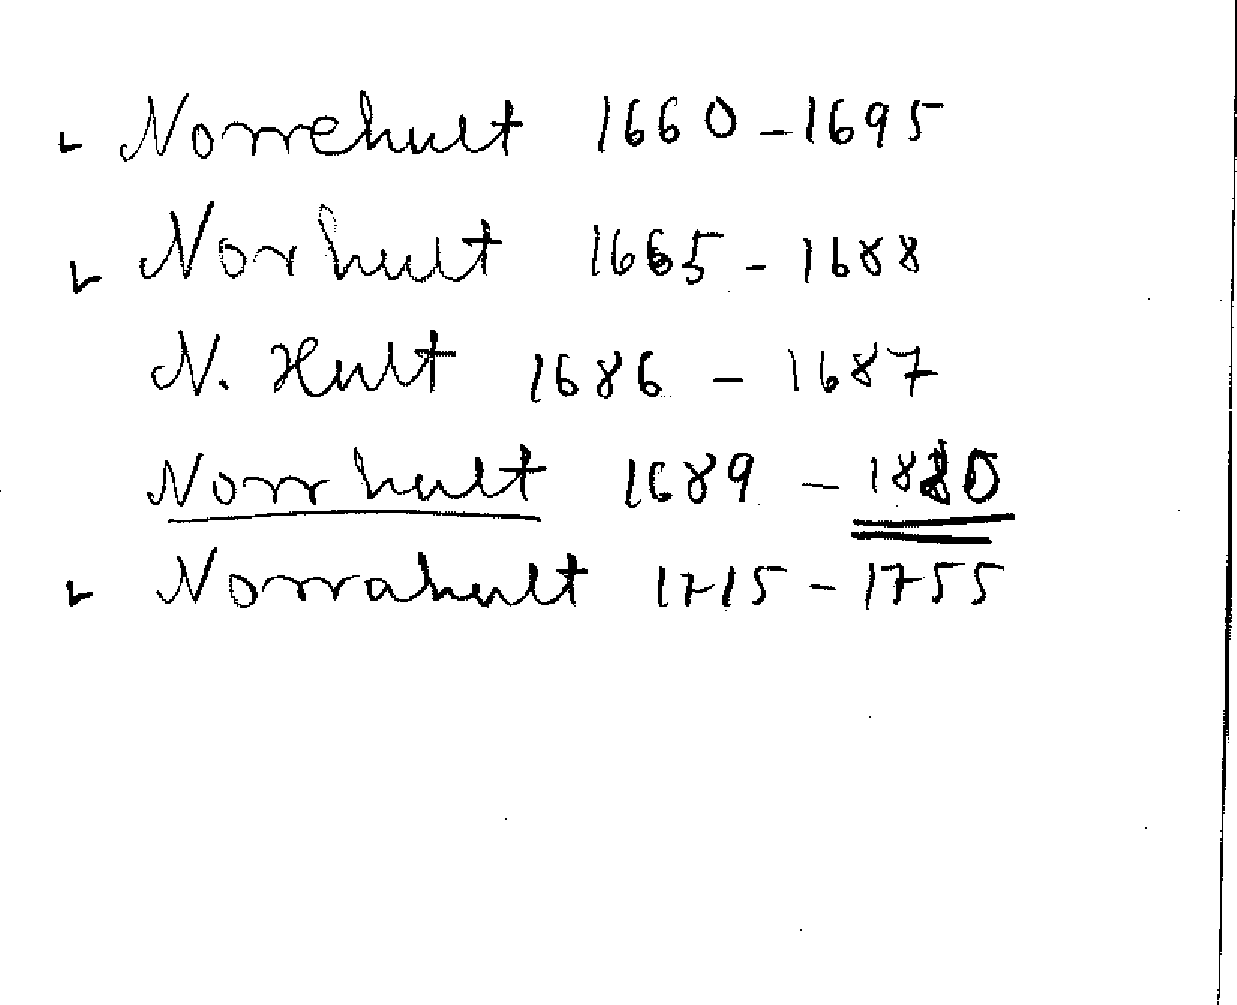 Norrehult 1660-1695
Norhult 1665-1688
N. Hult 1686-1687
Norrhult 1689-1820
Norrahult 1715-1755